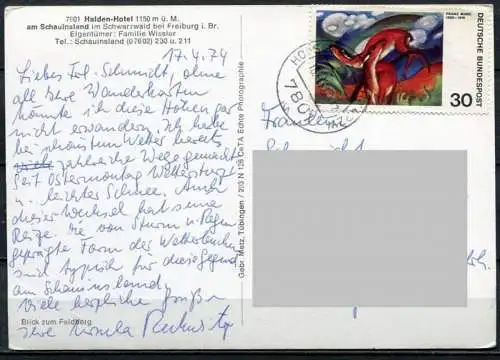 7801 Halden-Hotel 1150 m ü. M.
am Schauinsland im Schwarzwald bei Freiburg i. Br.
Eigentümer: Familie Wissler
Tel.: Schauinsland (07602) 230 u. 211
17.4.74
Liebes Frl. Schmidt, ohne
all Ihre Wanderkarten
könnte ich diese Höhen gar
nicht erwandern. Ich habe
bei schönstem Wetter bereits
zahlreiche Wege gemacht.
Seit Ostermontag Wettersturz
u. leichter Schnee. Auch
dieser Wechsel hat seine
Reize. Die von Sturm u. Regen
geprägte Form der Wetterbuchen
sind typisch für diese Gegend
am Schauinsland.
Viele herzliche Grüße
Ihre Ursula
Blick zum Feldberg
Gebr. Metz, Tübingen / 2/0 N 128 CeTA Echte Photographie
FRANZ MARC
DEUTSCHE BUNDESPOST
30
Fräulein